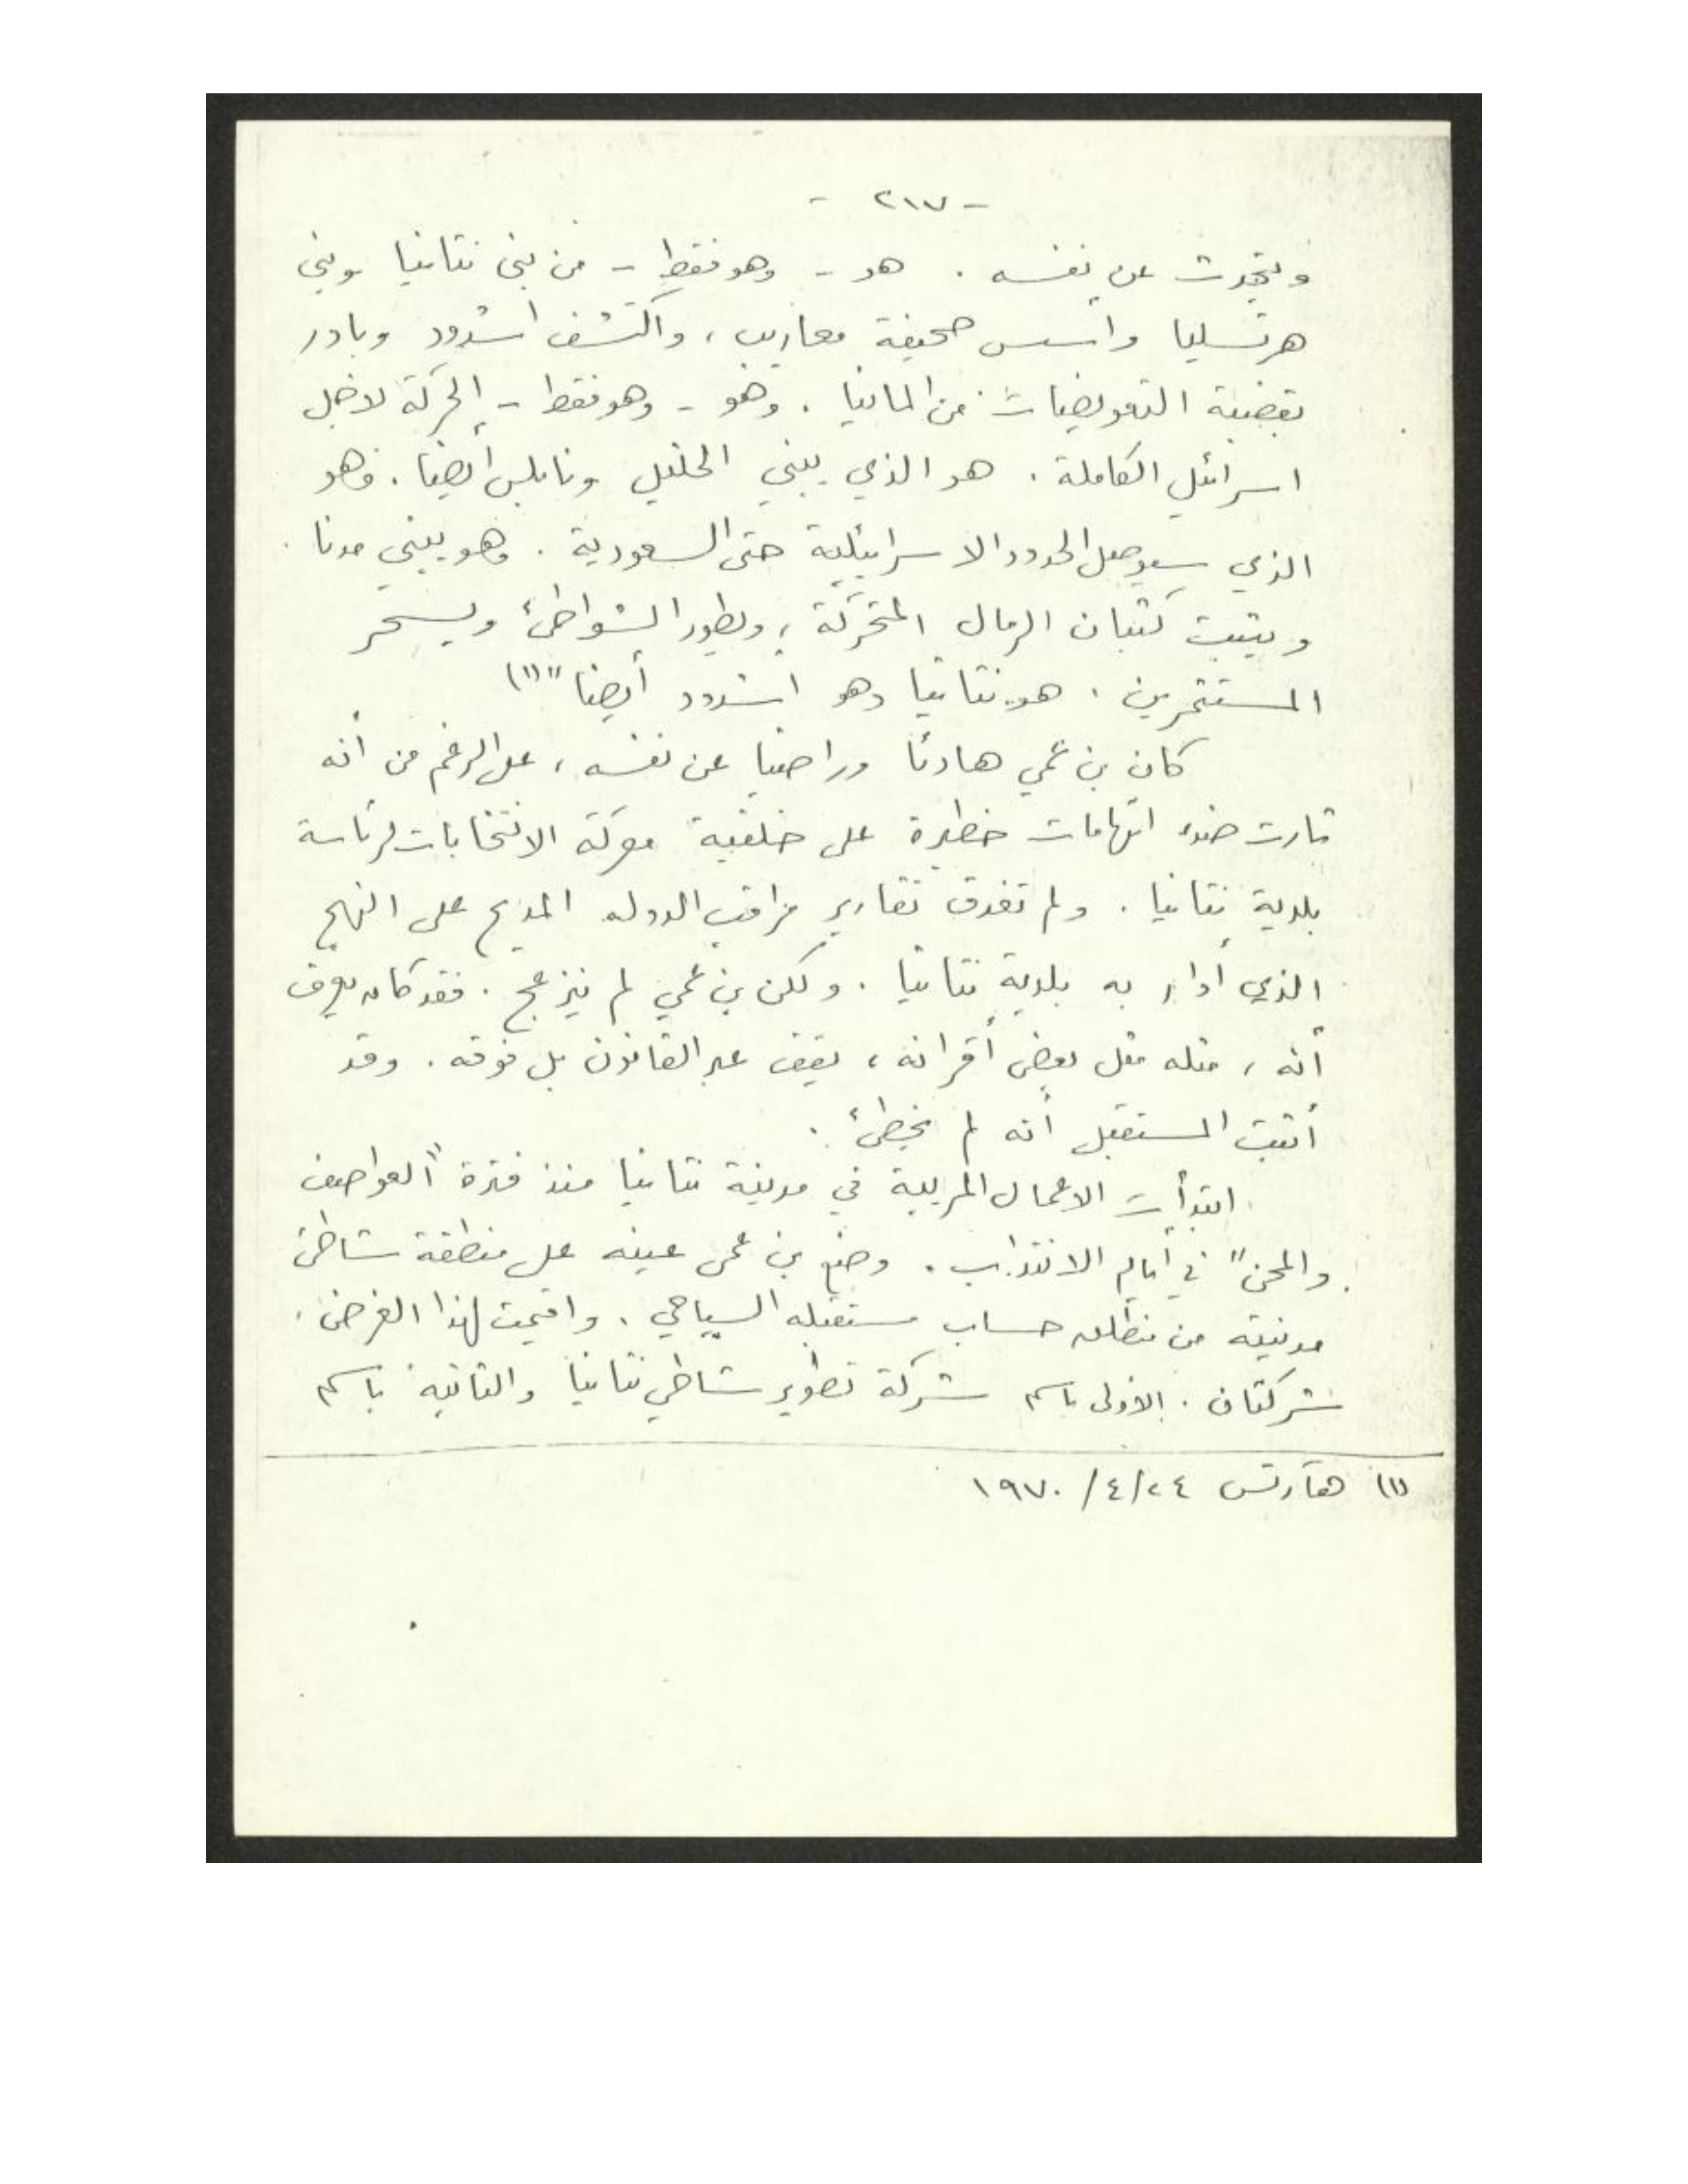 - ٢١٧ -
ويتحدث عن نفسه . هو - وهو فقط - من بنى نتانيا وبنى
هرتسليا وأسس صحيفة معاريب ، واكتشف اشدود وبادر
بقضية التعويضات من المانيا . وهو - وهو فقط - الحركة لاجل
اسرائيل الكاملة . هو الذي يبني الخليل ونابلس أيضا . وهو
الذي سيوصل الحدود الاسرائيلية حتى السعودية . وهو يبني مدنا
ويثبت كثبان الرمال المتحركة ، ويطور الشواطئ ويسحر
المستثمرين . هو نتانيا وهو اشدود أيضا " (١)
كان بن عمي هادئا وراضيا عن نفسه ، على الرغم من أنه
ثارت ضده اتهامات خطيرة على خلفية معركة الانتخابات لرئاسة
بلدية نتانيا . ولم تغدق تقارير مراقب الدولة المديح على النهج
الذي أدار به بلدية نتانيا . ولكن بن عمي لم ينزعج . فقد كان يعرف
أنه ، مثله مثل بعض أقرانه ، يقف عبر القانون بل فوقه . وقد
أثبت المستقبل أنه لم يخطئ .
ابتدأت الاعمال المريبة في مدينة نتانيا منذ فترة "العواصف
والمحن" في أيام الانتداب . وضع بن عمي عينه على منطقة شاطئ
مدينته من منطلق حساب مستقبله السياحي . واقيمت لهذا الغرض
شركتان . الاولى باسم شركة تطوير شاطئ نتانيا والثانية باسم
(١) هآرتس ٢٤/٤/ ١٩٧٠